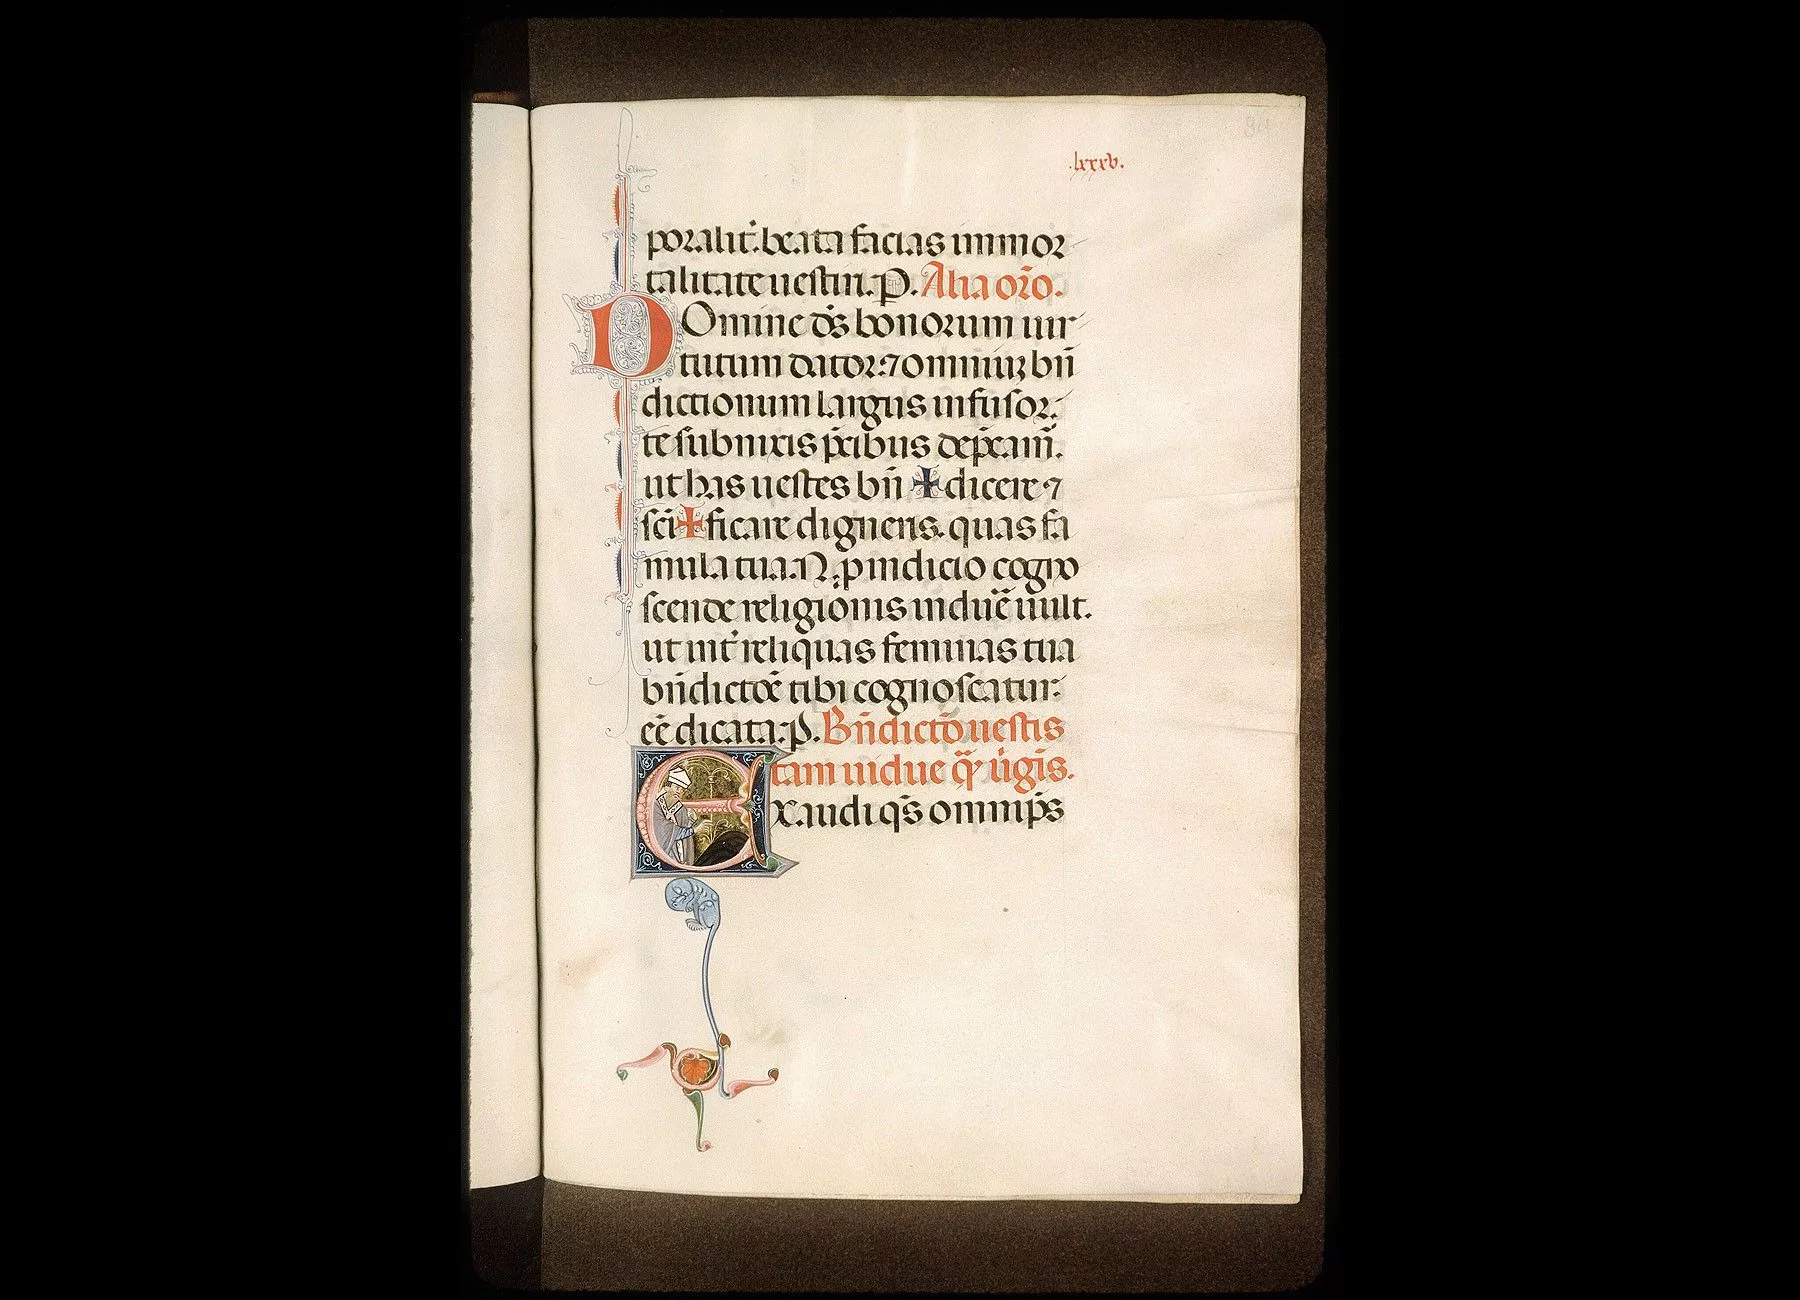 84
.lxxxv.
poralit᷑. beata facias immor
talitate uestiri. P. Alia oro̅.
DOmine ds̅ bonorum uir
tutum dator: ⁊ omniuꝫ bn̅
dictionum largus infusor.
te subnixis p̅cibus dep̅cam̅.
ut has uestes bn̅ ✠ dicere ⁊
sc̅i ✠ ficare digneris. quas fa
mula tua. N. ꝓ indicio cogno
scende religionis induere̅ uult.
ut int᷑ reliquas feminas tua
bn̅dictoe̅ tibi cognoscatur
ee̅ dicata: P. Bn̅dicto̅ uestis
tam uidue qꝫ̅ uı̅gı̅s.
EXaudi qs̅ omnip̅s